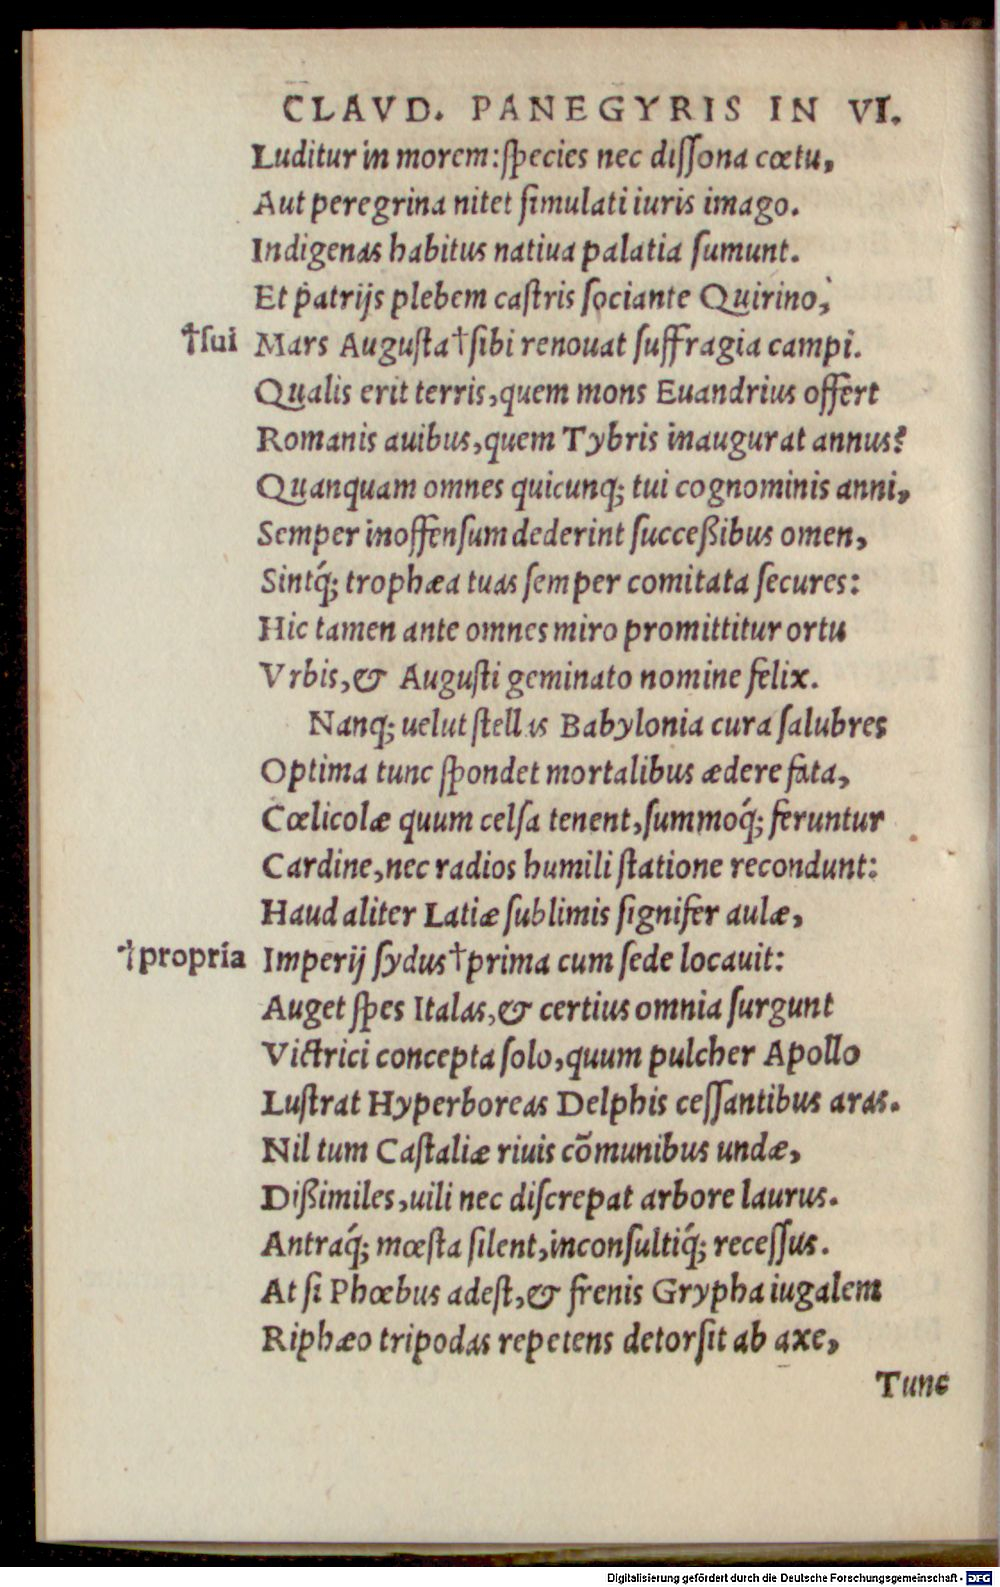 CLAVD. PANEGYRIS IN VI.
Luditur in morem: species nec dissona cœtu,
Aut peregrina nitet simulati iuris imago.
Indigenas habitus natiua palatia sumunt.
Et patrijs plebem castris sociante Quirino,
†sui Mars Augusta † sibi renouat suffragia campi.
Qualis erit terris, quem mons Euandrius offert
Romanis auibus, quem Tybris inaugurat annus?
Quanquam omnes quicunq; tui cognominis anni,
Semper inoffensum dederint succeßibus omen,
Sintq́; trophæa tuas semper comitata secures:
Hic tamen ante omnes miro promittitur ortu
Vrbis, & Augusti geminato nomine felix.
Nanq; uelut stellis Babylonia cura salubres
Optima tunc spondet mortalibus ædere fata,
Cœlicolæ quum celsa tenent, summoq́; feruntur
Cardine, nec radios humili statione recondunt:
Haud aliter Latiæ sublimis signifer aulæ,
†propria Imperij sydus † prima cum sede locauit:
Auget spes Italas, & certius omnia surgunt
Victrici concepta solo, quum pulcher Apollo
Lustrat Hyperboreas Delphis cessantibus aras.
Nil tum Castaliæ riuis cōmunibus undæ,
Dißimiles, uili nec discrepat arbore laurus.
Antraq́; mœsta silent, inconsultiq́; recessus.
At si Phœbus adest, & frenis Grypha iugalem
Riphæo tripodas repetens detorsit ab axe,
Tunc
Digitalisierung gefördert durch die Deutsche Forschungsgemeinschaft - DFG